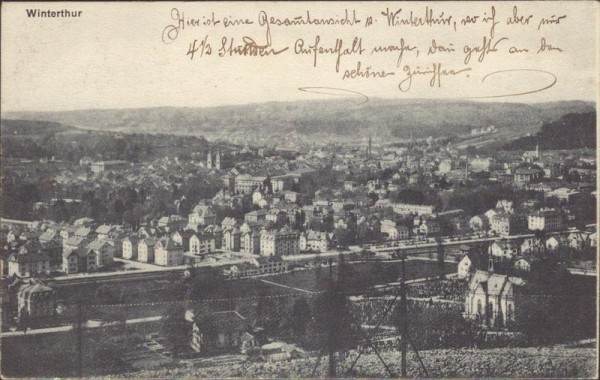 Winterthur
Hier ist eine Gesamtansicht v. Winterthur, wo ich aber nur
4½ Stunden Aufenthalt mache, dan gehts an den
schönen Zürichsee.